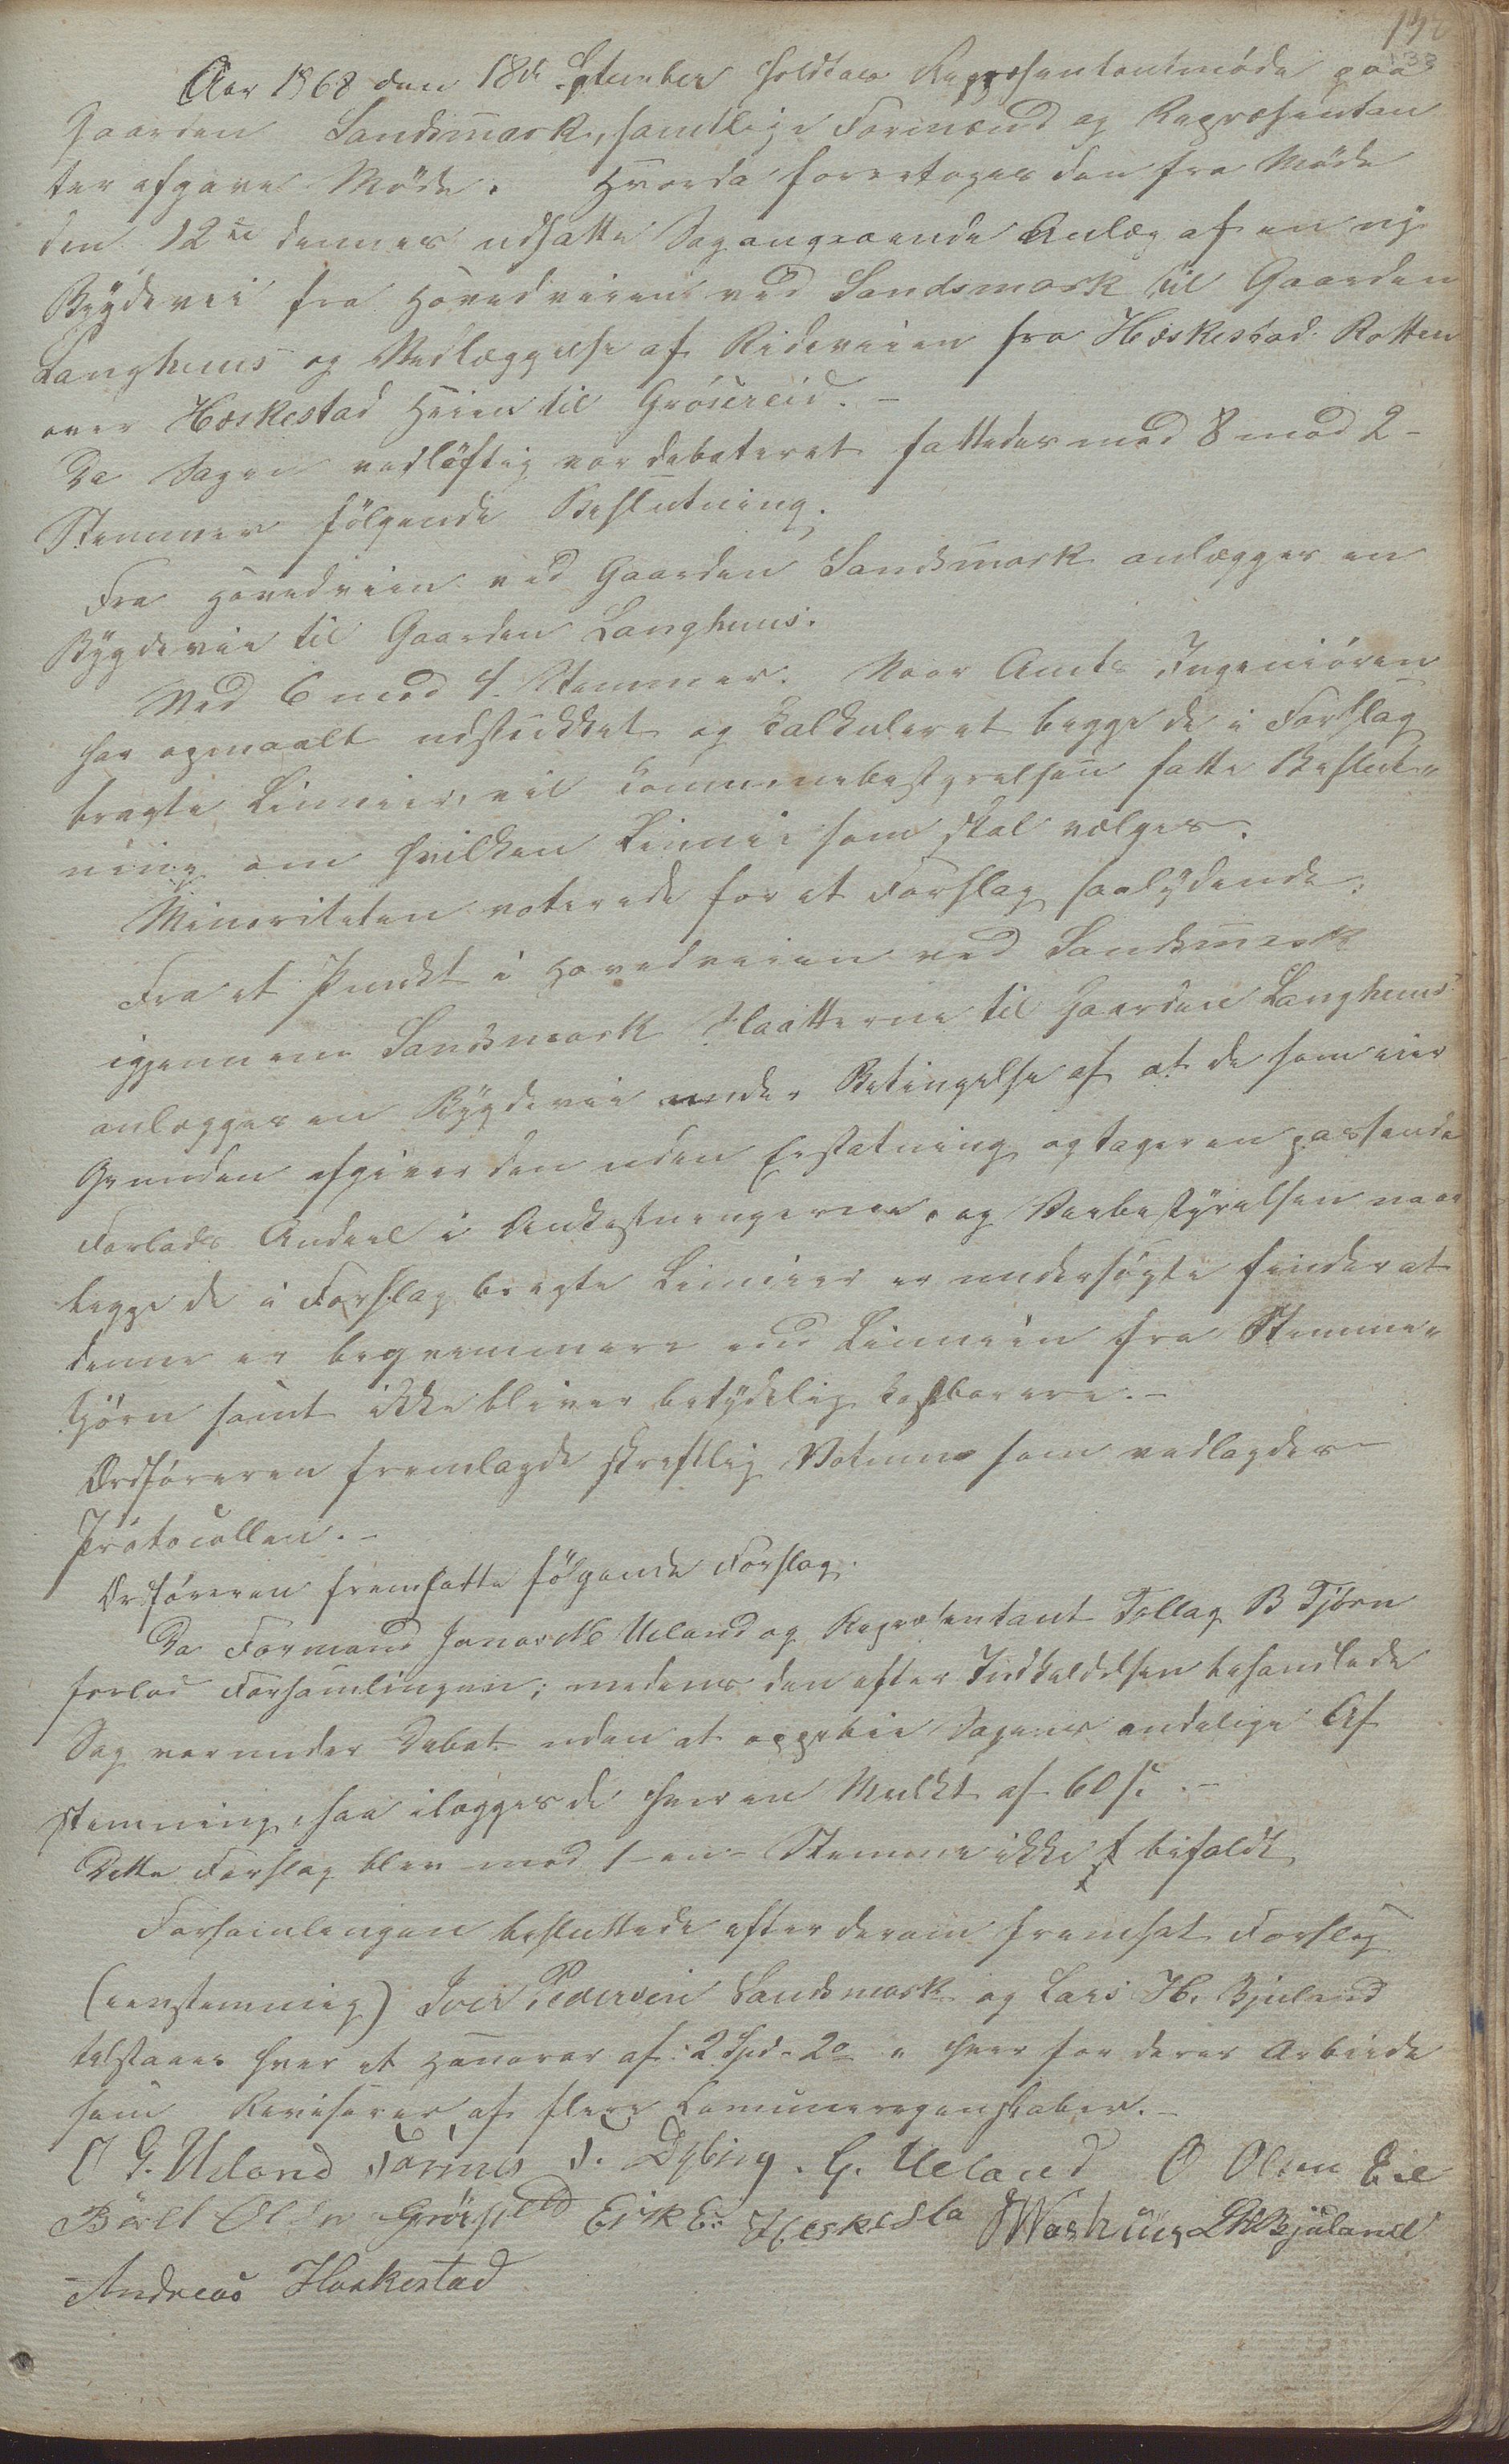 132
133
Aar 1868 den 18de September holdtes Repræsentantmöde paa
Gaarden Sandsmark, samtlige Formænd og Repræsentan
ter afgave Möde. Hvorda foretoges den fra Möde
den 12te dennes udsatte Sag angaaende Anlæg af en ny
Bygdevei fra Hovedveien ved Sandsmark til Gaarden
Langhuus og Nedlæggelse af Rideveien fra Hæskestad Rotten
over Hæskestad Heien til Gröseeid. -
Da Sagen vidlöftig var debateret fattedes med 8 mod 2 -
Stemmer fölgende Beslutning.
Fra Hovedveien ved Gaarden Sandsmark anlægges en
Bygdevei til Gaarden Langhuus.
Med 6 mod 4 Stemmer. Naar Amts Ingeniören
har opmaalt udstukket og kalkuleret begge de i Forslag
bragte Linnier, vil Communebestyrelsen fatte Beslut-
ning om hvilken Linnie som skal vælges.
Minoriteten voterede for et Forslag saalydende:
Fra et Punkt i Hovedveien ved Sandsmark
igjennem Sandsmark Slaatterne til Gaarden Langhuus
anlægges en Bygdevei under Betingelse af at de som eier
Grunden afgiver den uden Erstatning og tager en passende
Forlods Andeel i Omkostningerne, og Veibestyrelsen naar
begge de i Forslag bragte Linnier er undersögte finder at
denne er beqvemmere end Linnien fra Stemme-
tjörn samt ikke bliver betydelig kostbarere. -
Ordföreren fremlagde skriftlig Votum som vedlagdes
Protocollen. -
Ordföreren fremsatte fölgende Forslag.
Da Formand Jonas M Ueland og Repræsentant Tollag B Tjörn
forlod Forsamlingen; medens den efter Indkaldelsen behandlede
Sag var under Debat uden at oppebie Sagens endelige Af
stemning, saa ilægges de hver en Mulkt af 60 s. -
Dette Forslag blev mod 1 - en - Stemme ikke bifaldt
Forsamlingen besluttede efter derom fremsat Forslag
(eenstemmig) Iver Pedersen Sandsmark og Lars H. Bjuland
tilstaaes hver et Honorar af 2 Spd. 2 hver for deres Arbeide
som Revisorer af flere Communeregnskaber. -
O G. Ueland Tönnes T. Dybing. G. Ueland O Olsen Eie
Bård Olsn Grösfeld Erik E. Heskesta J Washuus L H Bjuland
Andreas Haskestad